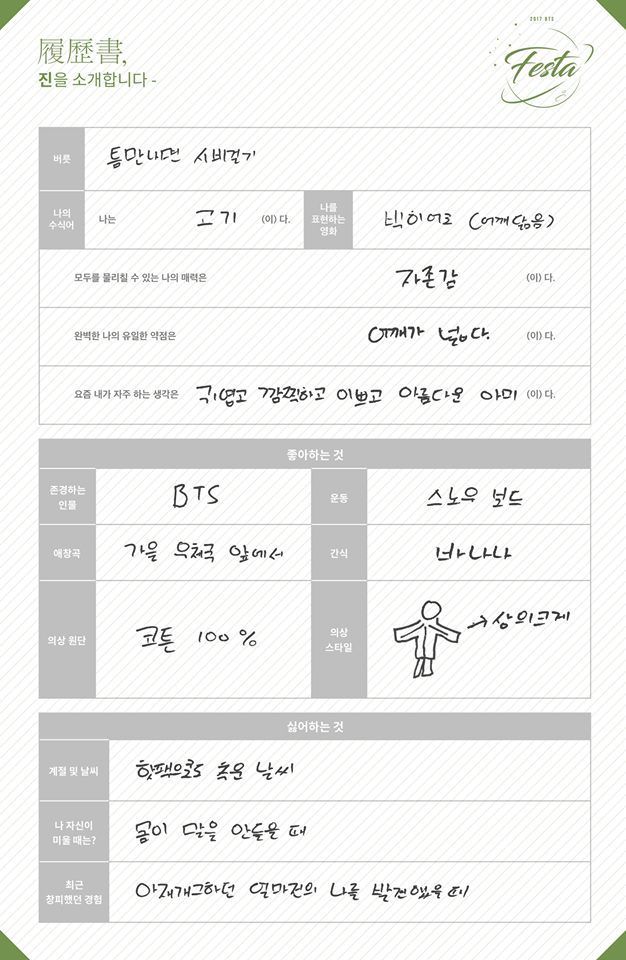 2017 BTS
Festa
履歷書,
진을 소개합니다 -
버릇 틈만나면 시비걸기
나의 수식어 나는 고기 (이) 다. 나를 표현하는 영화 빅히어로 (어깨닮음)
모두를 물리칠 수 있는 나의 매력은 자존감 (이) 다.
완벽한 나의 유일한 약점은 어깨가 넓다. (이) 다.
요즘 내가 자주 하는 생각은 귀엽고 깜찍하고 이쁘고 아름다운 아미 (이) 다.
좋아하는 것
존경하는 인물 BTS 운동 스노우 보드
애창곡 가을 우체국 앞에서 간식 바나나
의상 원단 코튼 100 % 의상 스타일 → 상의크게
싫어하는 것
계절 및 날씨 핫팩으로도 추운 날씨
나 자신이 미울 때는? 몸이 말을 안들을 때
최근 창피했던 경험 아재개그하던 얼마전의 나를 발견했을때